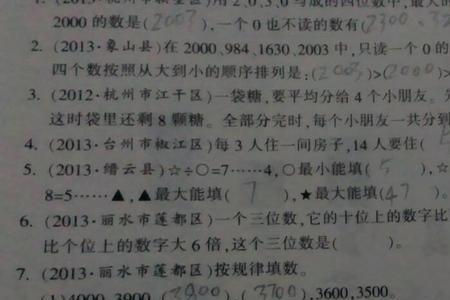 2000 的数是(2003),一个 0 也不读的数有(2300
2. (2013·象山县)在 2000、984、1630、2003 中,只读一个 0 的
四个数按照从大到小的顺序排列是:(2003)>(2000)>
3. (2012·杭州市江干区)一袋糖,要平均分给 4 个小朋友。
这时袋里还剩 8 颗糖。全部分完时,每个小朋友一共分到
4. (2013·台州市椒江区)每 3 人住一间房子,14 人要住(
5. (2013·缙云县)☆÷○=7……4,○最小能填(5),☆
8=5……▲,▲最大能填(7),★最大能填(47)。
6. (2013·丽水市莲都区)一个三位数,它的十位上的数字比
比个位上的数字大 6 倍,这个三位数是( )。
7. (2013·丽水市莲都区)按规律填数。
(1)4000、3900、(3800)、(3700)、3600、3500。